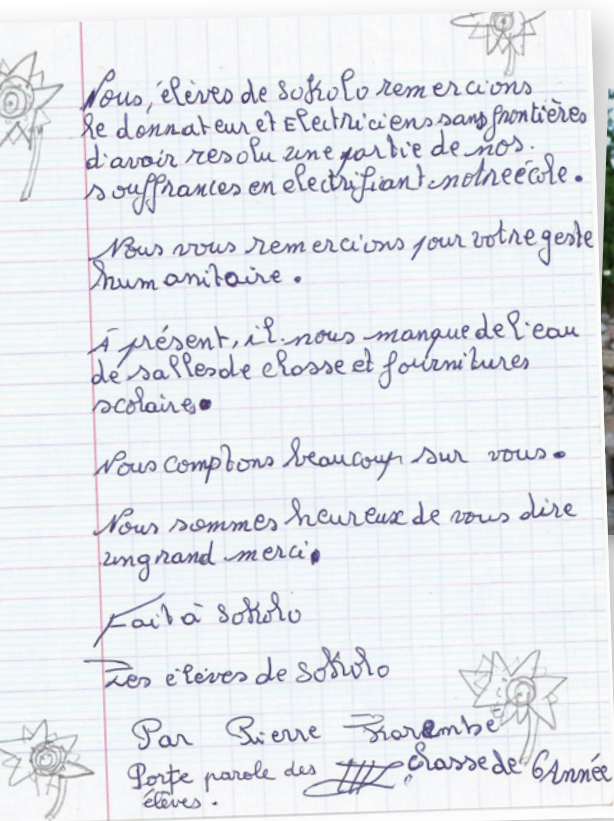 Nous, élèves de Sokolo remercions
le donnateur et Electriciens sans frontières
d'avoir resolu une partie de nos.
souffrances en electrifiant notre école.
Nous vous remercions pour votre geste
humanitaire.
À présent, il nous manque de l'eau
de salles de classe et fournitures
scolaires.
Nous comptons beaucoup sur vous.
Nous sommes heureux de vous dire
un grand merci.
Fait à Sokolo
Les élèves de Sokolo
Par Pierre Karembé
Porte parole des classe de 6 Année
élèves.